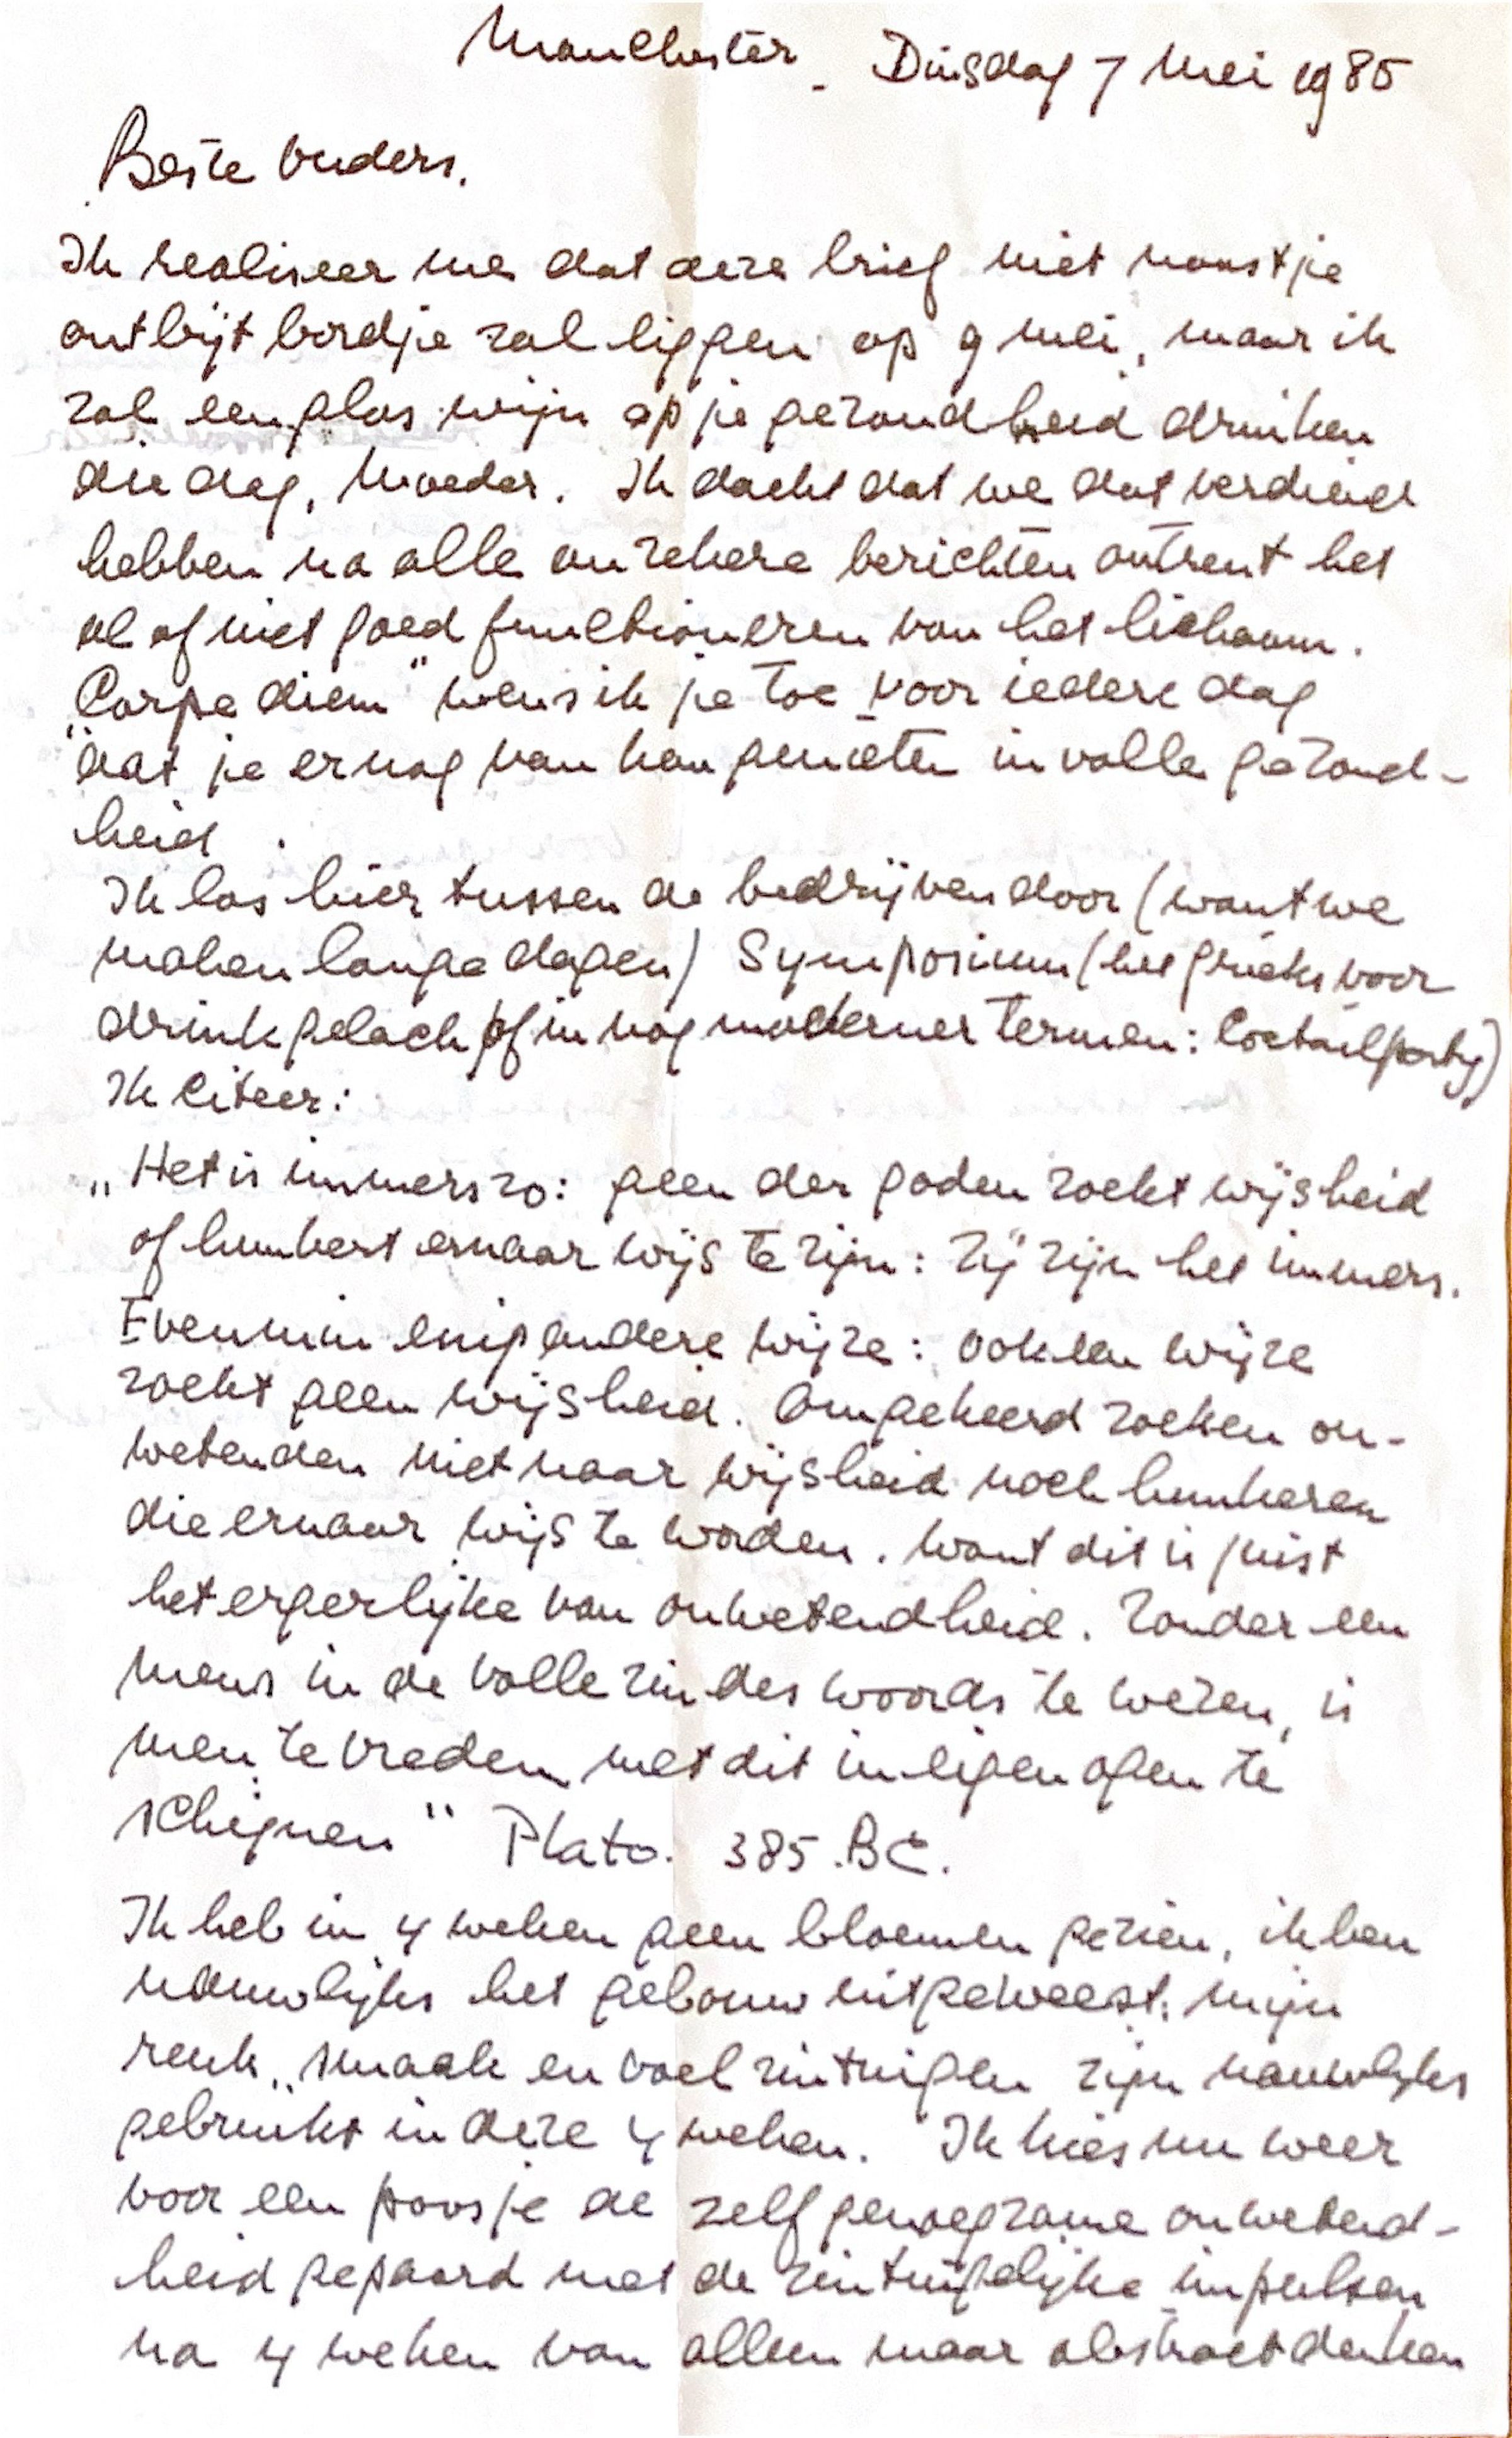 Manchester - Dinsdag 7 Mei 1985
Beste Ouders.
Ik realiseer me dat deze brief niet naast je
ontbijt bordje zal liggen op 9 mei, maar ik
zal een glas wijn op je gezondheid drinken
die dag, Moeder. Ik dacht dat we dat verdiend
hebben na alle onzekere berichten omtrent het
al of niet goed functioneren van het lichaam.
"Carpe diem" wens ik je toe voor iedere dag
dat je er nog van kan genieten in volle gezond-
heid.
Ik las hier tussen de bedrijven door (want we
maken lange dagen) Symposium (het grieks voor
drinkgelach of in nog moderner termen: Coctailparty)
Ik citeer:
„Het is immers zo: geen der goden zoekt wijsheid
of hunkert ernaar wijs te zijn: zij zijn het immers.
Evenmin enig andere wijze: ook een wijze
zoekt geen wijsheid. Omgekeerd zoeken on-
wetenden niet naar wijsheid noch hunkeren
die ernaar wijs te worden. Want dit is juist
het ergerlijke van onwetendheid. Zonder een
mens in de volle zin des woords te wezen, is
men te vreden met dit in eigen ogen te
schijnen" Plato. 385. BC.
Ik heb in 4 weken geen bloemen gezien, ik ben
nauwlijks het gebouw uitgeweest. mijn
reuk, smaak en voel zintuigen zijn nauwlijks
gebruikt in deze 4 weken. Ik kies nu weer
voor een poosje de zelfgenoegzame onwetend-
heid gepaard met de zintuigelijke impulsen
na 4 weken van alleen maar abstract denken